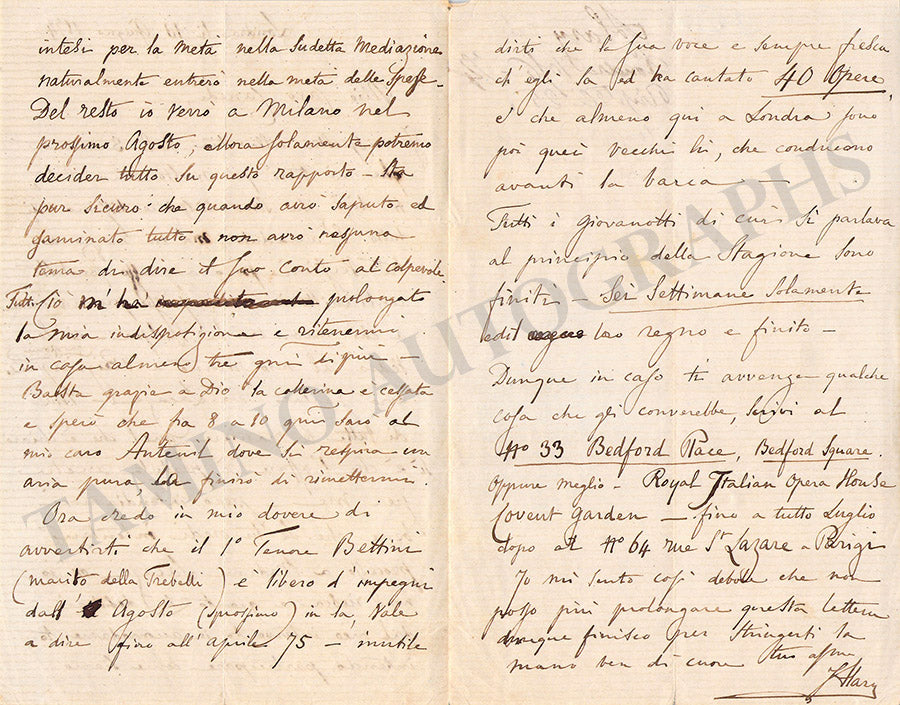 intesi per la metà nella sudetta Mediazione
naturalmente entrerò nella metà delle spese.
Del resto io verrò a Milano nel
prossimo Agosto, allora solamente potremo
decider tutto su questo rapporto – Sta
pur sicuro che quando avrò saputo ed
esaminato tutto non avrò nessuna
tema di dire il suo conto al colpevole
Tutto ciò m'ha prolongato
la mia indisposizione e ritenermi
in casa almeno tre giorni di più –
Basta grazie a Dio la collerina e cessata
e spero che fra 8 a 10 giorni sarò al
mio caro Auteuil dove si respira un
aria pura, la finirò di rimettermi.
Ora credo in mio dovere di
avvertirti che il 1º Tenore Bettini
(marito della Trebelli) e libero d'impegni
dall' Agosto (prossimo) in la, Vale
a dire fino all'aprile 75 – inutile
dirti che la sua voce e sempre fresca
ch'egli sa ed ha cantato 40 Opere,
e che almeno qui a Londra sono
poi queì vecchi lì, che conducono
avanti la barca –
Tutti i giovanotti di cui si parlava
al principio della Stagione sono
finiti – Sei Settimane solamente
ed il loro regno e finito –
Dunque in caso ti avvenga qualche
cosa che gli converebbe, scrivi al
Nº 33 Bedford Place, Bedford Square.
Oppure meglio – Royal Italian Opera House
Covent Garden – fino a tutto Luglio
dopo al Nº 64 rue St Lazare a Parigi
Io mi sento così debole che non
posso più prolongare questa lettera
dunque finisco per stringerti la
mano ben di cuore tuo affmo
TAMINO AUTOGRAPHS